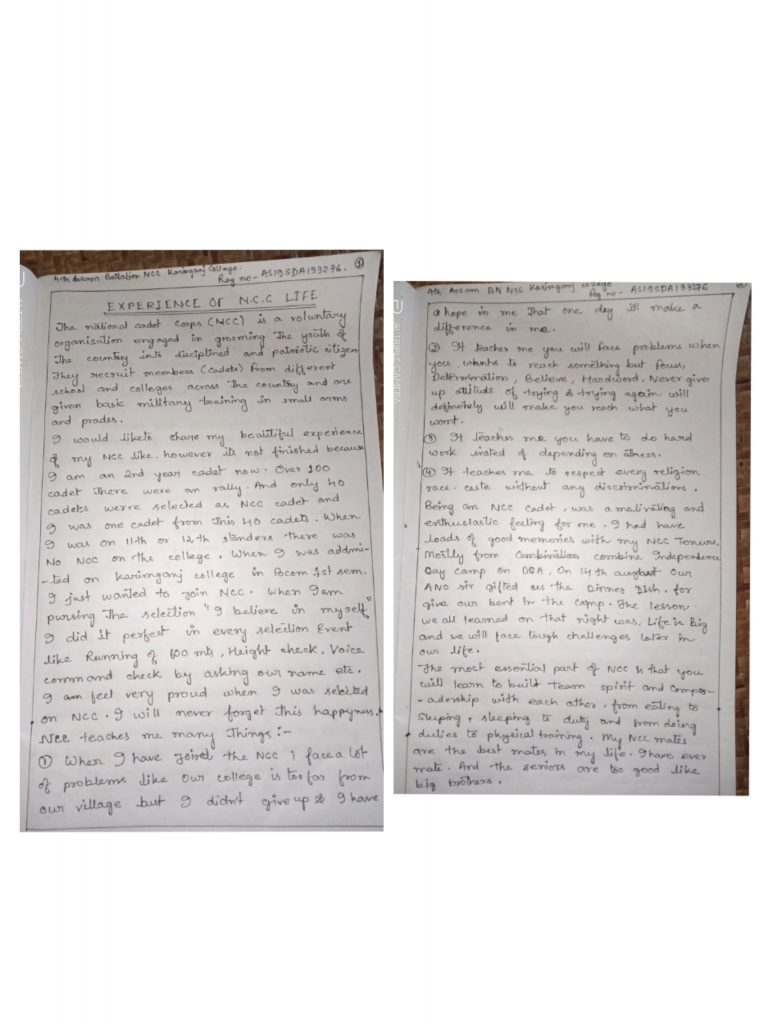 4th Assam Battalion NCC Karimganj College.
Reg no- AS19SDA193276. 1
EXPERIENCE OF N.C.C LIFE
The national cadet corps (NCC) is a voluntary
organisation engaged in grooming the youth of
the country into disciplined and patriotic citizen
They recruit members (cadets) from different
school and colleges across the country and are
given basic military training in small arms
and prades.
I would liketo share my beautiful experience
of my NCC like. however its not finished because
I am an 2nd year cadet now. Over 100
cadet there were an rally. And only 40
cadets werre selected as NCC cadet and
I was one cadet from this 40 cadets. When
I was on 11th or 12th standers there was
No NCC on the college. When I was addmi-
-ted on Karimganj college in Bcom 1st sem.
I just wanted to join NCC. when I am
pursing the selection "I believe in myself"
I did it perfest in every selection Event
like Running of 600 mts, Height check, Voice
command check by asking our name etc.
I am feel very proud when I was selected
on NCC. I will never forget this happyness.
Ncc teaches me many things:-
① When I have joined the NCC i face a lot
of problems like our college is too far from
our village but I didn't give up I have
4th Assam BN NCC Karimganj college
Reg no- AS19SDA193276
a hope in me that one day I'll make a
difference in me.
② It teaches me you will face problems when
you wants to reach something but focus,
Determination, Believe, Hardword, Never give
up atitude of trying & trying again will
definetely will make you reach what you
want.
③ It teaches me you have to do hard
work insted of depending on others.
④ It teaches me to respect every religion
race. caste without any discriminations.
Being an NCC cadet, was a motivating and
enthusiastic feeling for me. I had have
loads of good memories with my NCC Tenure,
Mostly from combine Independence
Day camp on DSA, On 14th august our
ANO sir gifted us the Dinner Dish. for
give our bent in the camp. The lesson
we all learned on that night was, Life is Big
and we will face tough challenges later in
our life.
The most essential part of NCC is that you
will learn to build team spirit and compor-
-adership with each other, from eating to
sleeping, sleeping to duty and from doing
duties to physical training. My NCC mates
are the best mates in my life. I have ever
mate. And the seniors are too good like
big brothers.